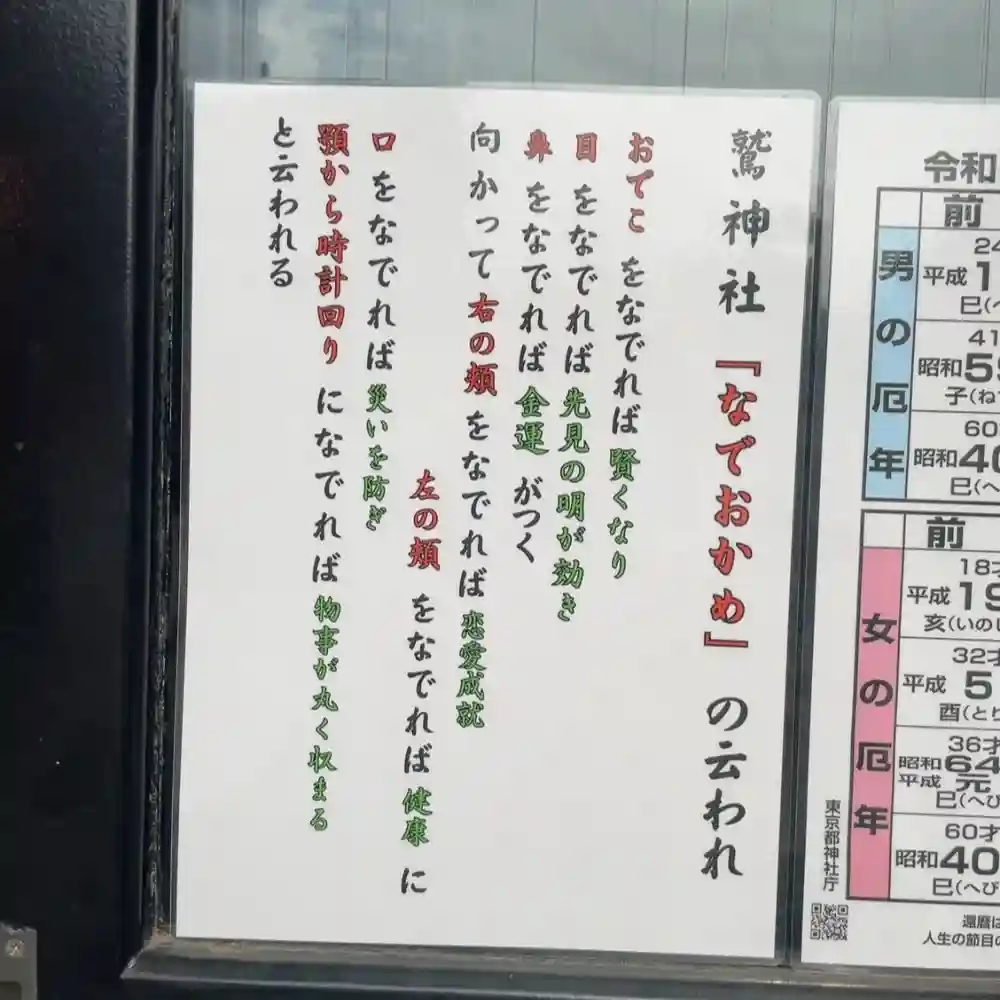 鷲神社『なでおかめ』の云われ
おでこをなでれば賢くなり
目をなでれば先見の明が効き
鼻をなでれば金運がつく
向かって右の頬をなでれば恋愛成就
左の頬をなでれば健康に
口をなでれば災いを防ぎ
顎から時計回りになでれば物事が丸く収まる
と云われる
令和
前
男の厄年
平成
昭和
昭和
前
女の厄年
18才
平成 19
32才
平成 5
36才
昭和64
平成 元
60才
昭和40
東京都神社庁
還暦は
人生の節目の